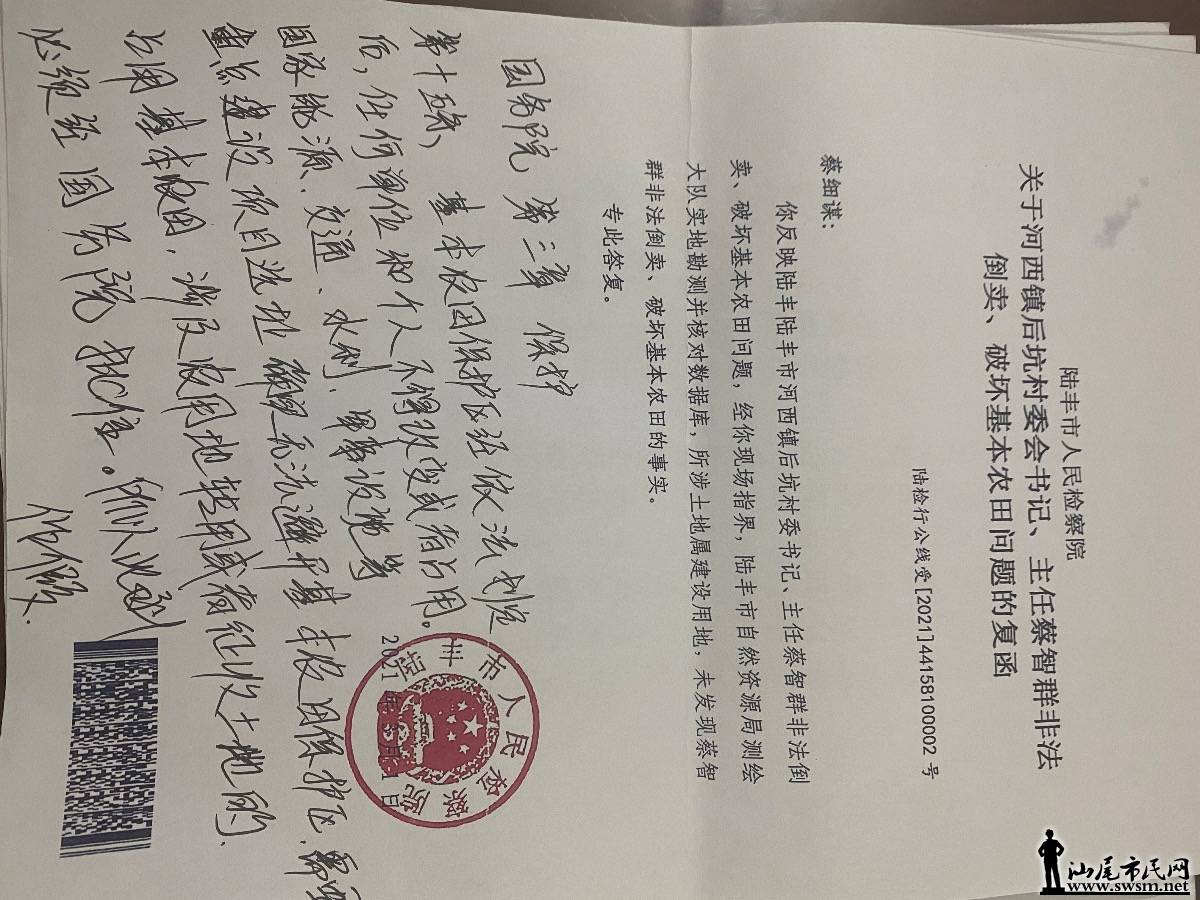 陆丰市人民检察院
关于河西镇后坑村委会书记、主任蔡智群非法
倒卖、破坏基本农田问题的复函
陆检行公线受[2021]44158100002号
蔡细谋：
你反映陆丰陆丰市河西镇后坑村委书记、主任蔡智群非法倒
卖、破坏基本农田问题，经你现场指界，陆丰市自然资源局测绘
大队实地勘测并核对数据库，所涉土地属建设用地，未发现蔡智
群非法倒卖、破坏基本农田的事实。
专此答复。
国务院 第三章 保护
第十五条、基本农田保护区经依法划定
后，任何单位和个人不得改变或者占用。
国家能源、交通、水利、军事设施等
重点建设项目选址确实无法避开基本农田保护区，需要
占用基本农田，涉及农用地转用或者征收土地的
必须经国务院批准。所以
陆丰市人民检察院
汕尾市民网
www.swsm.net